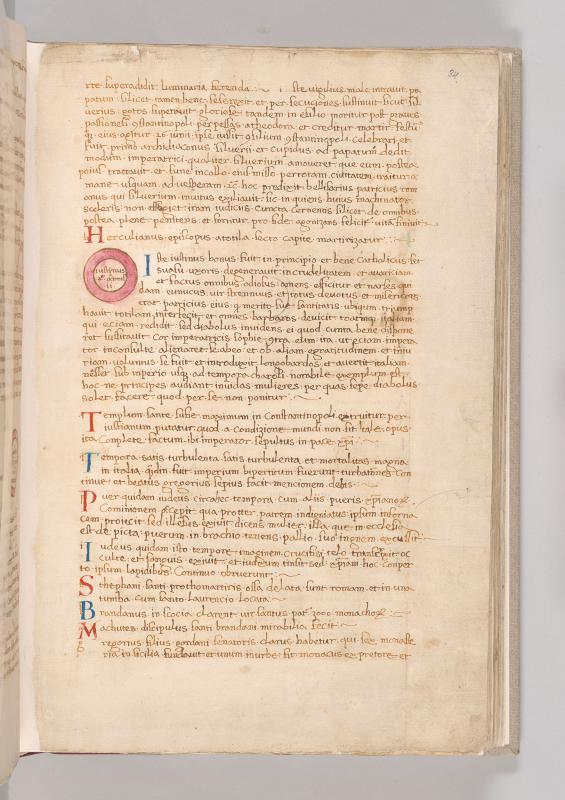 34
rte superaddidit luminaria ferenda iste vigilius male intravit pa
patum silicet tamen bene se gessit et persecuciones sustinuit sicut sil
verius gloriose tandem in exilio moritur post graves
passiones constantinopoli perpessas a theodora et creditur martir festum
eius agitur 26 iunii ipse iussit constantinopoli celebrari et
fuit primo archidiaconus silverii et cupidus ad papatum dedit
modum imperatrici qualiter silverium amoveret que eum postea
mane usquam ad vesperam hoc predixit bellisarius patricius rom
anus qui silverium invitus exiliavit sic inquiens huius machinator
sceleris non et iram iudicis cuncta cernentis silicet de omnibus
postea plene penitens et fortiter pro fide agonizans feliciter vitam finivit
Herculianus episcopus a totila secto capite martirizatur
iustinus
ii
Iste iustinus bonus fuit in principio et bene catholicus set
suasu uxoris degeneravit in crudelitatem et avariciam
et factus omnibus odiosus amens efficitur et narses qui
dam eunucus vir strennuus et totus devotus et misericors
erat patricius eius merito sue santitatis ubique triump
havit totilam interfecit et omnes barbaros devicit totamque italiam
qui eciam redidit sed diabolus invidens ei quod cunta bene dispone
ret sussitavit cor imperatricis sophie contra elim ita ut eciam impera
tor inconsulte alienaret se ab eo et ob aliam egratitudinem et iniu
riam voluntus se fuit et introduxit longobardos et avertit italiam
ne esset sub imperio usque ad tempora charoli notabile exemplum est
hoc ne principes audiant invidas mulieres per quas sepe diabolus
solet facere quod per se non ponitur
Templum sante sofie maximum in Constantinopoli extruitur per
iustianum putatur quod a condizione mundi non sit tale opus
ita complete factum ibi imperator sepultus in pace xpi
Tempora satis turbulenta satis turbulenta et mortalitas magna
in italia quidem fuit imperium bipertitum fuerunt turbationes con
tinue et beatus gregorius sepius facit mencionem de his
Puer quidam iudeus circa hec tempora cum aliis pueris xpianorum
Comunionem accepit qua propter patrem indignatus ipsum in forna
cem proiecit sed illesus exivit dicens mulier illa que in ecclesia
est de picta puerum in brachio tenens pallio suo ignem excussit
Iudeus quidam isto tempore imaginem crucifixi telo transfixit oc
culte et sanguis exivit et iudeum tinsit sed xpiani hoc conper
to ipsum lapidibus continuo obruerunt
Sthephani santi prothomartiris ossa delata sunt romam et in una
tumba cum santo laurencio locata
Brandanus in scocia clarent vir santus pater 3000 monachorum
Machutes discipulus santi brandani mirabilia fecit
gregorius filius gordani senatoris clarus habetur qui sex monaste
ria in sicilia fundavit et unum in urbe fit monacus ex pretore et